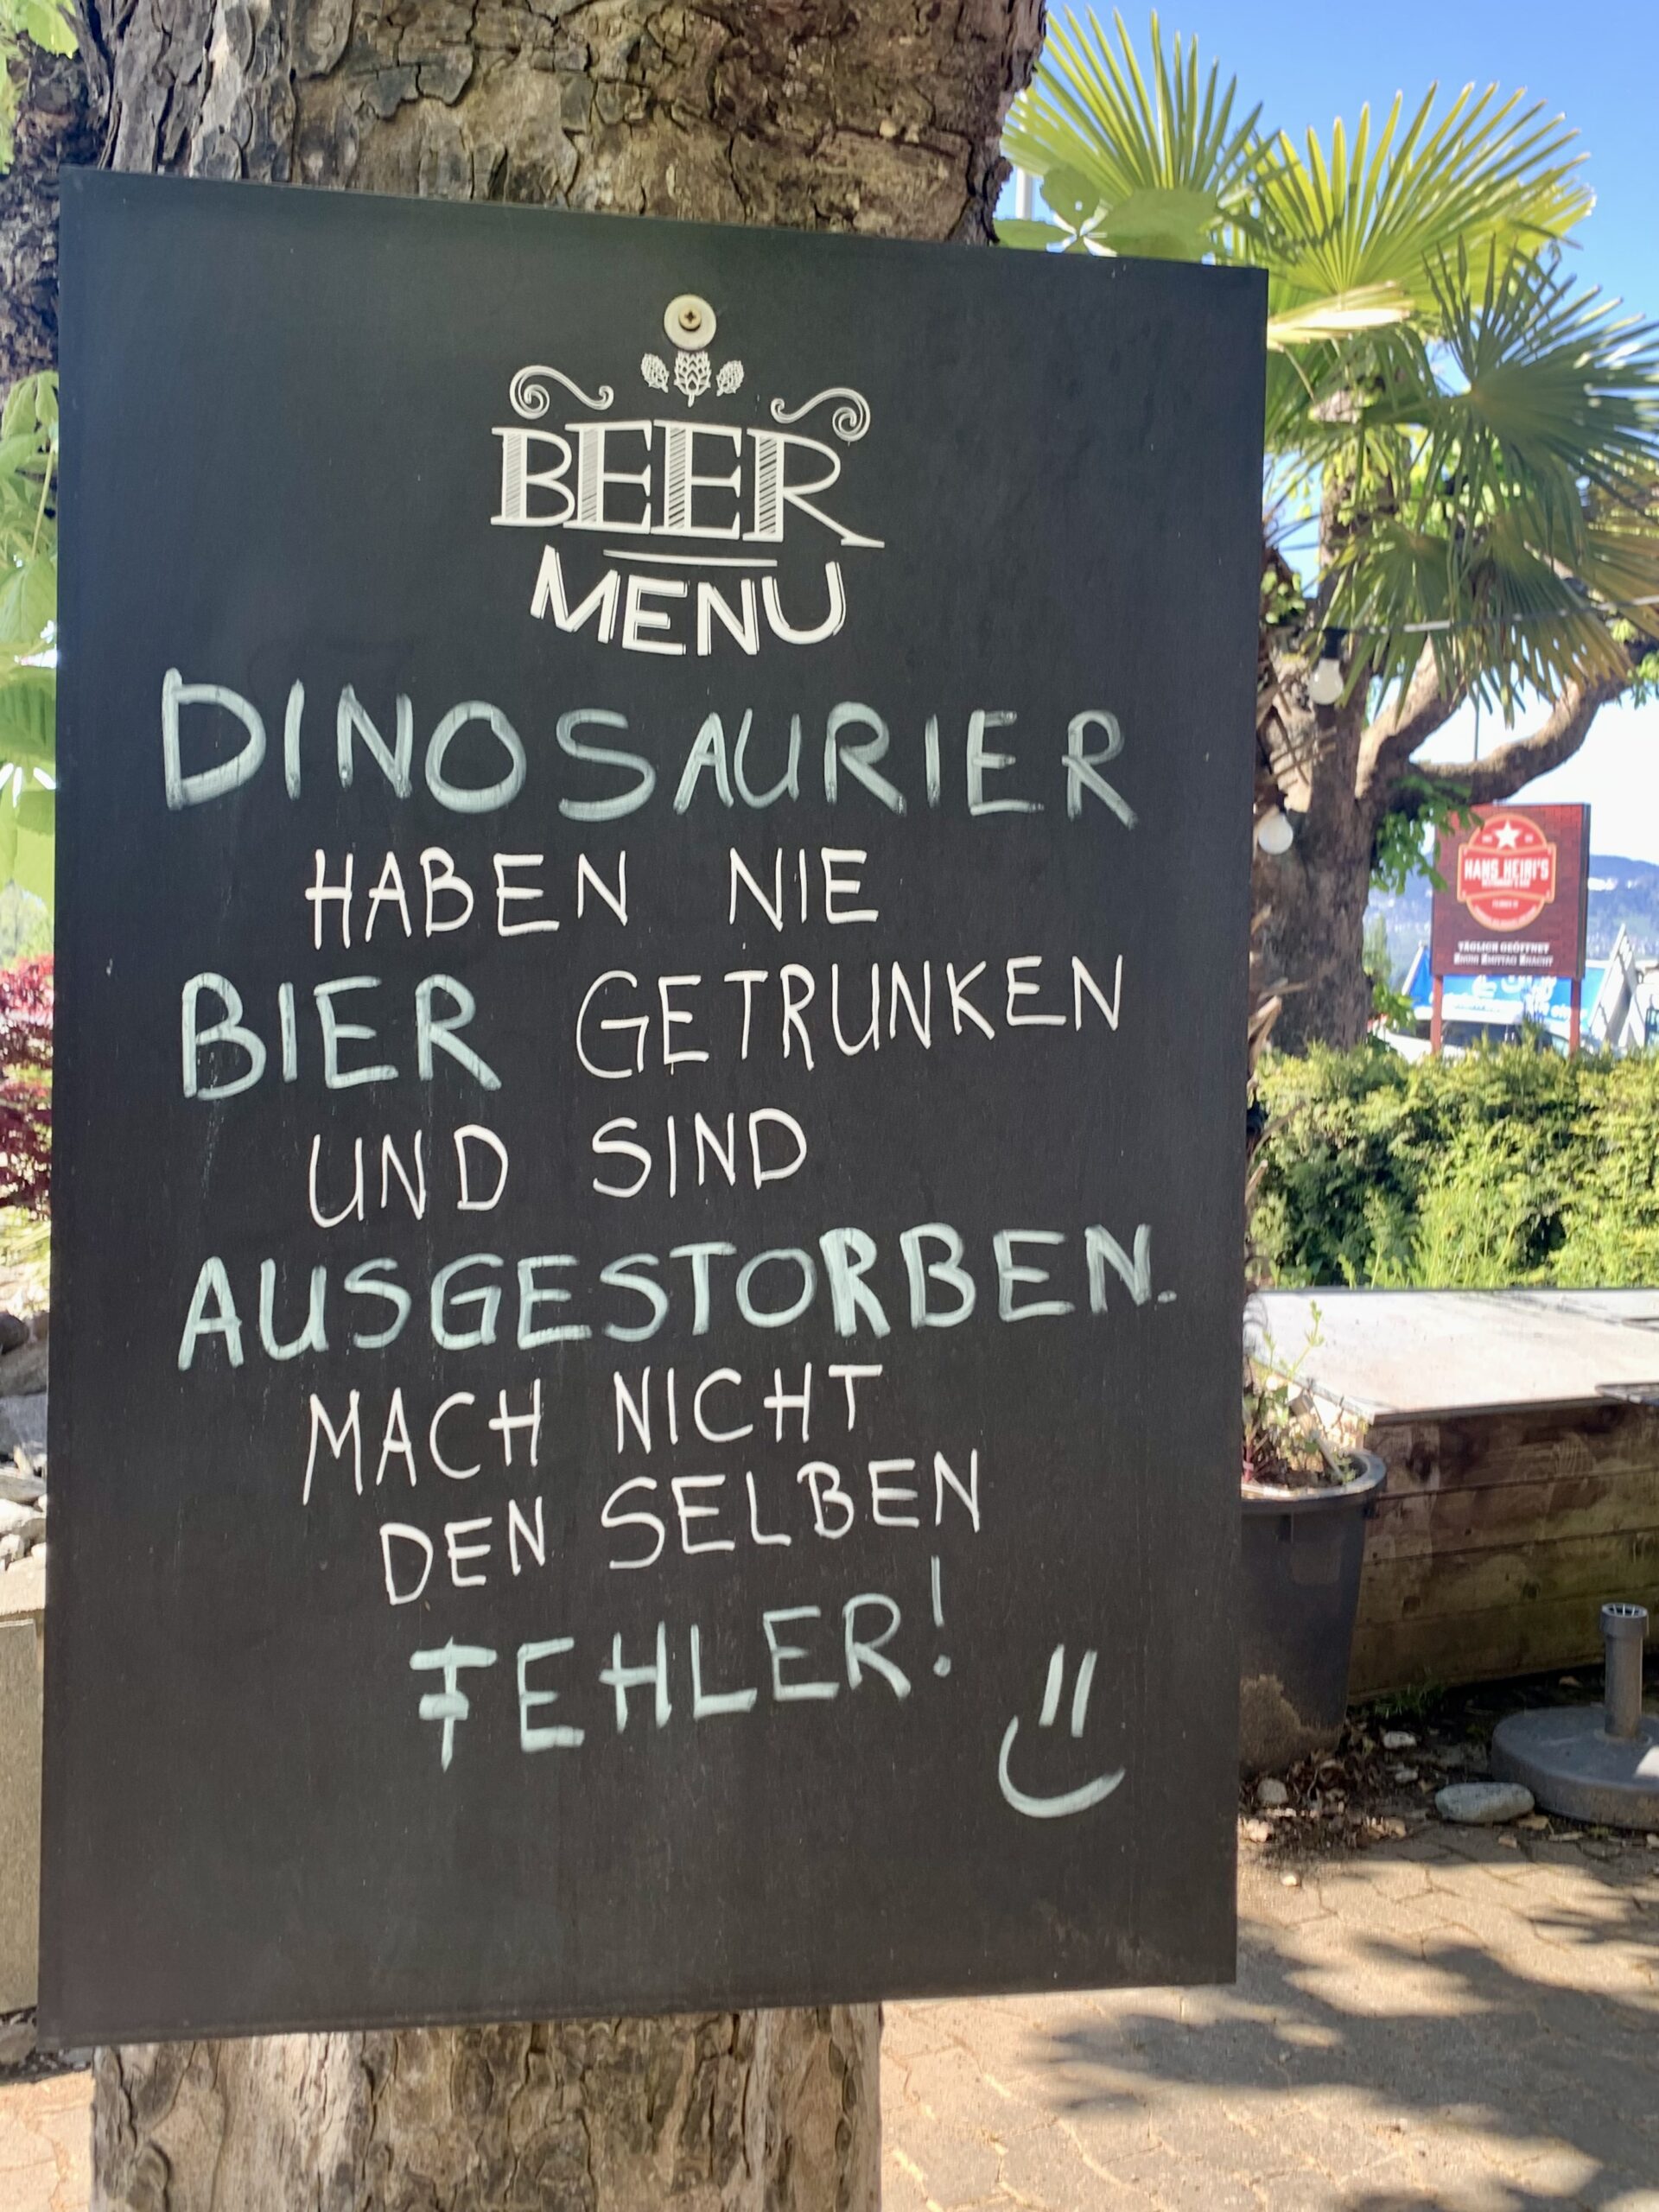 BEER
MENU
DINOSAURIER
HABEN NIE
BIER GETRUNKEN
UND SIND
AUSGESTORBEN.
MACH NICHT
DEN SELBEN
FEHLER!
HANS HEIRI'S
TÄGLICH GEÖFFNET